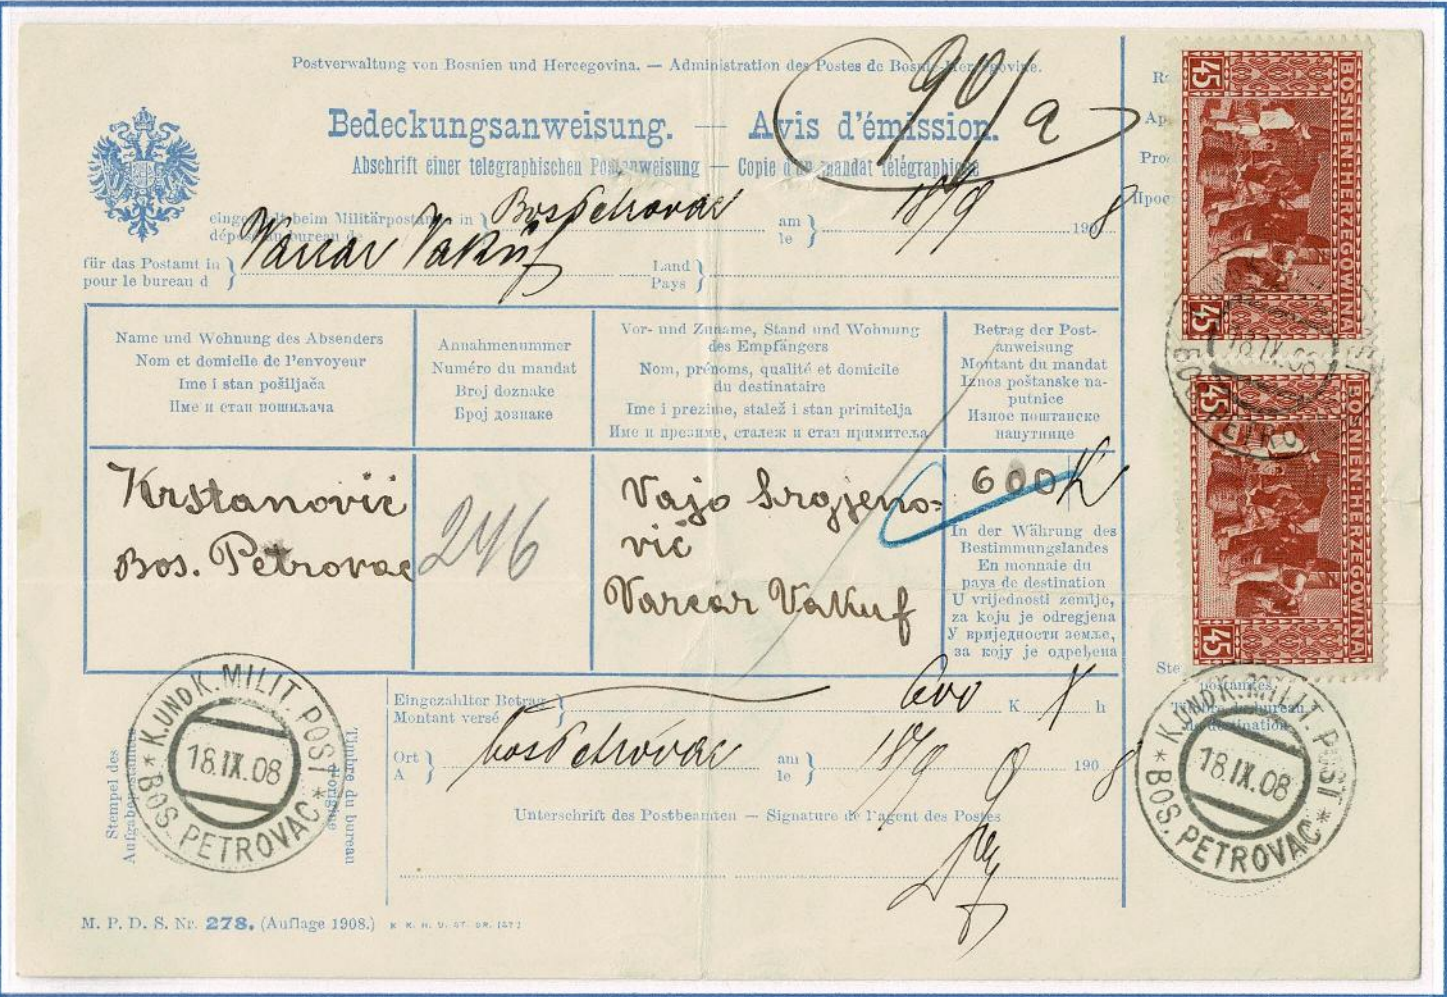 Postverwaltung von Bosnien und Hercegovina. — Administration des Postes de Bosnie-Hercegovine.
90/a
Bedeckungsanweisung. — Avis d'émission.
Abschrift einer telegraphischen Postanweisung — Copie d'un mandat télégraphique
eingezahlt beim Militärpostamte in } Bos Petrovac am 18/9 1908
déposé au bureau de le
für das Postamt in } Varcar Vakuf Land }
pour le bureau d Pays
Name und Wohnung des Absenders
Nom et domicile de l'envoyeur
Ime i stan pošiljača
Име и стан пошиљача
Annahmenummer
Numéro du mandat
Broj doznake
Број дознаке
Vor- und Zuname, Stand und Wohnung
des Empfängers
Nom, prénoms, qualité et domicile
du destinataire
Ime i prezime, stalež i stan primitelja
Име и презиме, сталеж и стан примитеља
Betrag der Post-
anweisung
Montant du mandat
Iznos poštanske na-
putnice
Износ поштанске
напутнице
Krstanović
Bos. Petrovac
246
Vajo Srgjeno-
vić
Varcar Vakuf
600 K
In der Währung des
Bestimmungslandes
En monnaie du
pays de destination
U vrijednosti zemlje,
za koju je odregjena
У вриједности земље,
за коју је одређена
Eingezahlter Betrag } 600 K h
Montant versé
Ort } Bos Petrovac am } 18/9 1908
A le
Unterschrift des Postbeamten — Signature de l'agent des Postes
Stempel des
Aufgabepostamtes
Timbre du bureau
d'origine
K. UND K. MILIT. POST
18.IX.08
* BOS. PETROVAC *
M. P. D. S. Nr. 278. (Auflage 1908.)
Pro
Ste
postamtes
Timbre du bureau
de destination
45 BOSNIEN HERZEGOWINA 45
18.IX.08
BOS. PETRO
45 BOSNIEN HERZEGOWINA 45
K. UND K. MILIT. POST
18.IX.08
* BOS. PETROVAC *